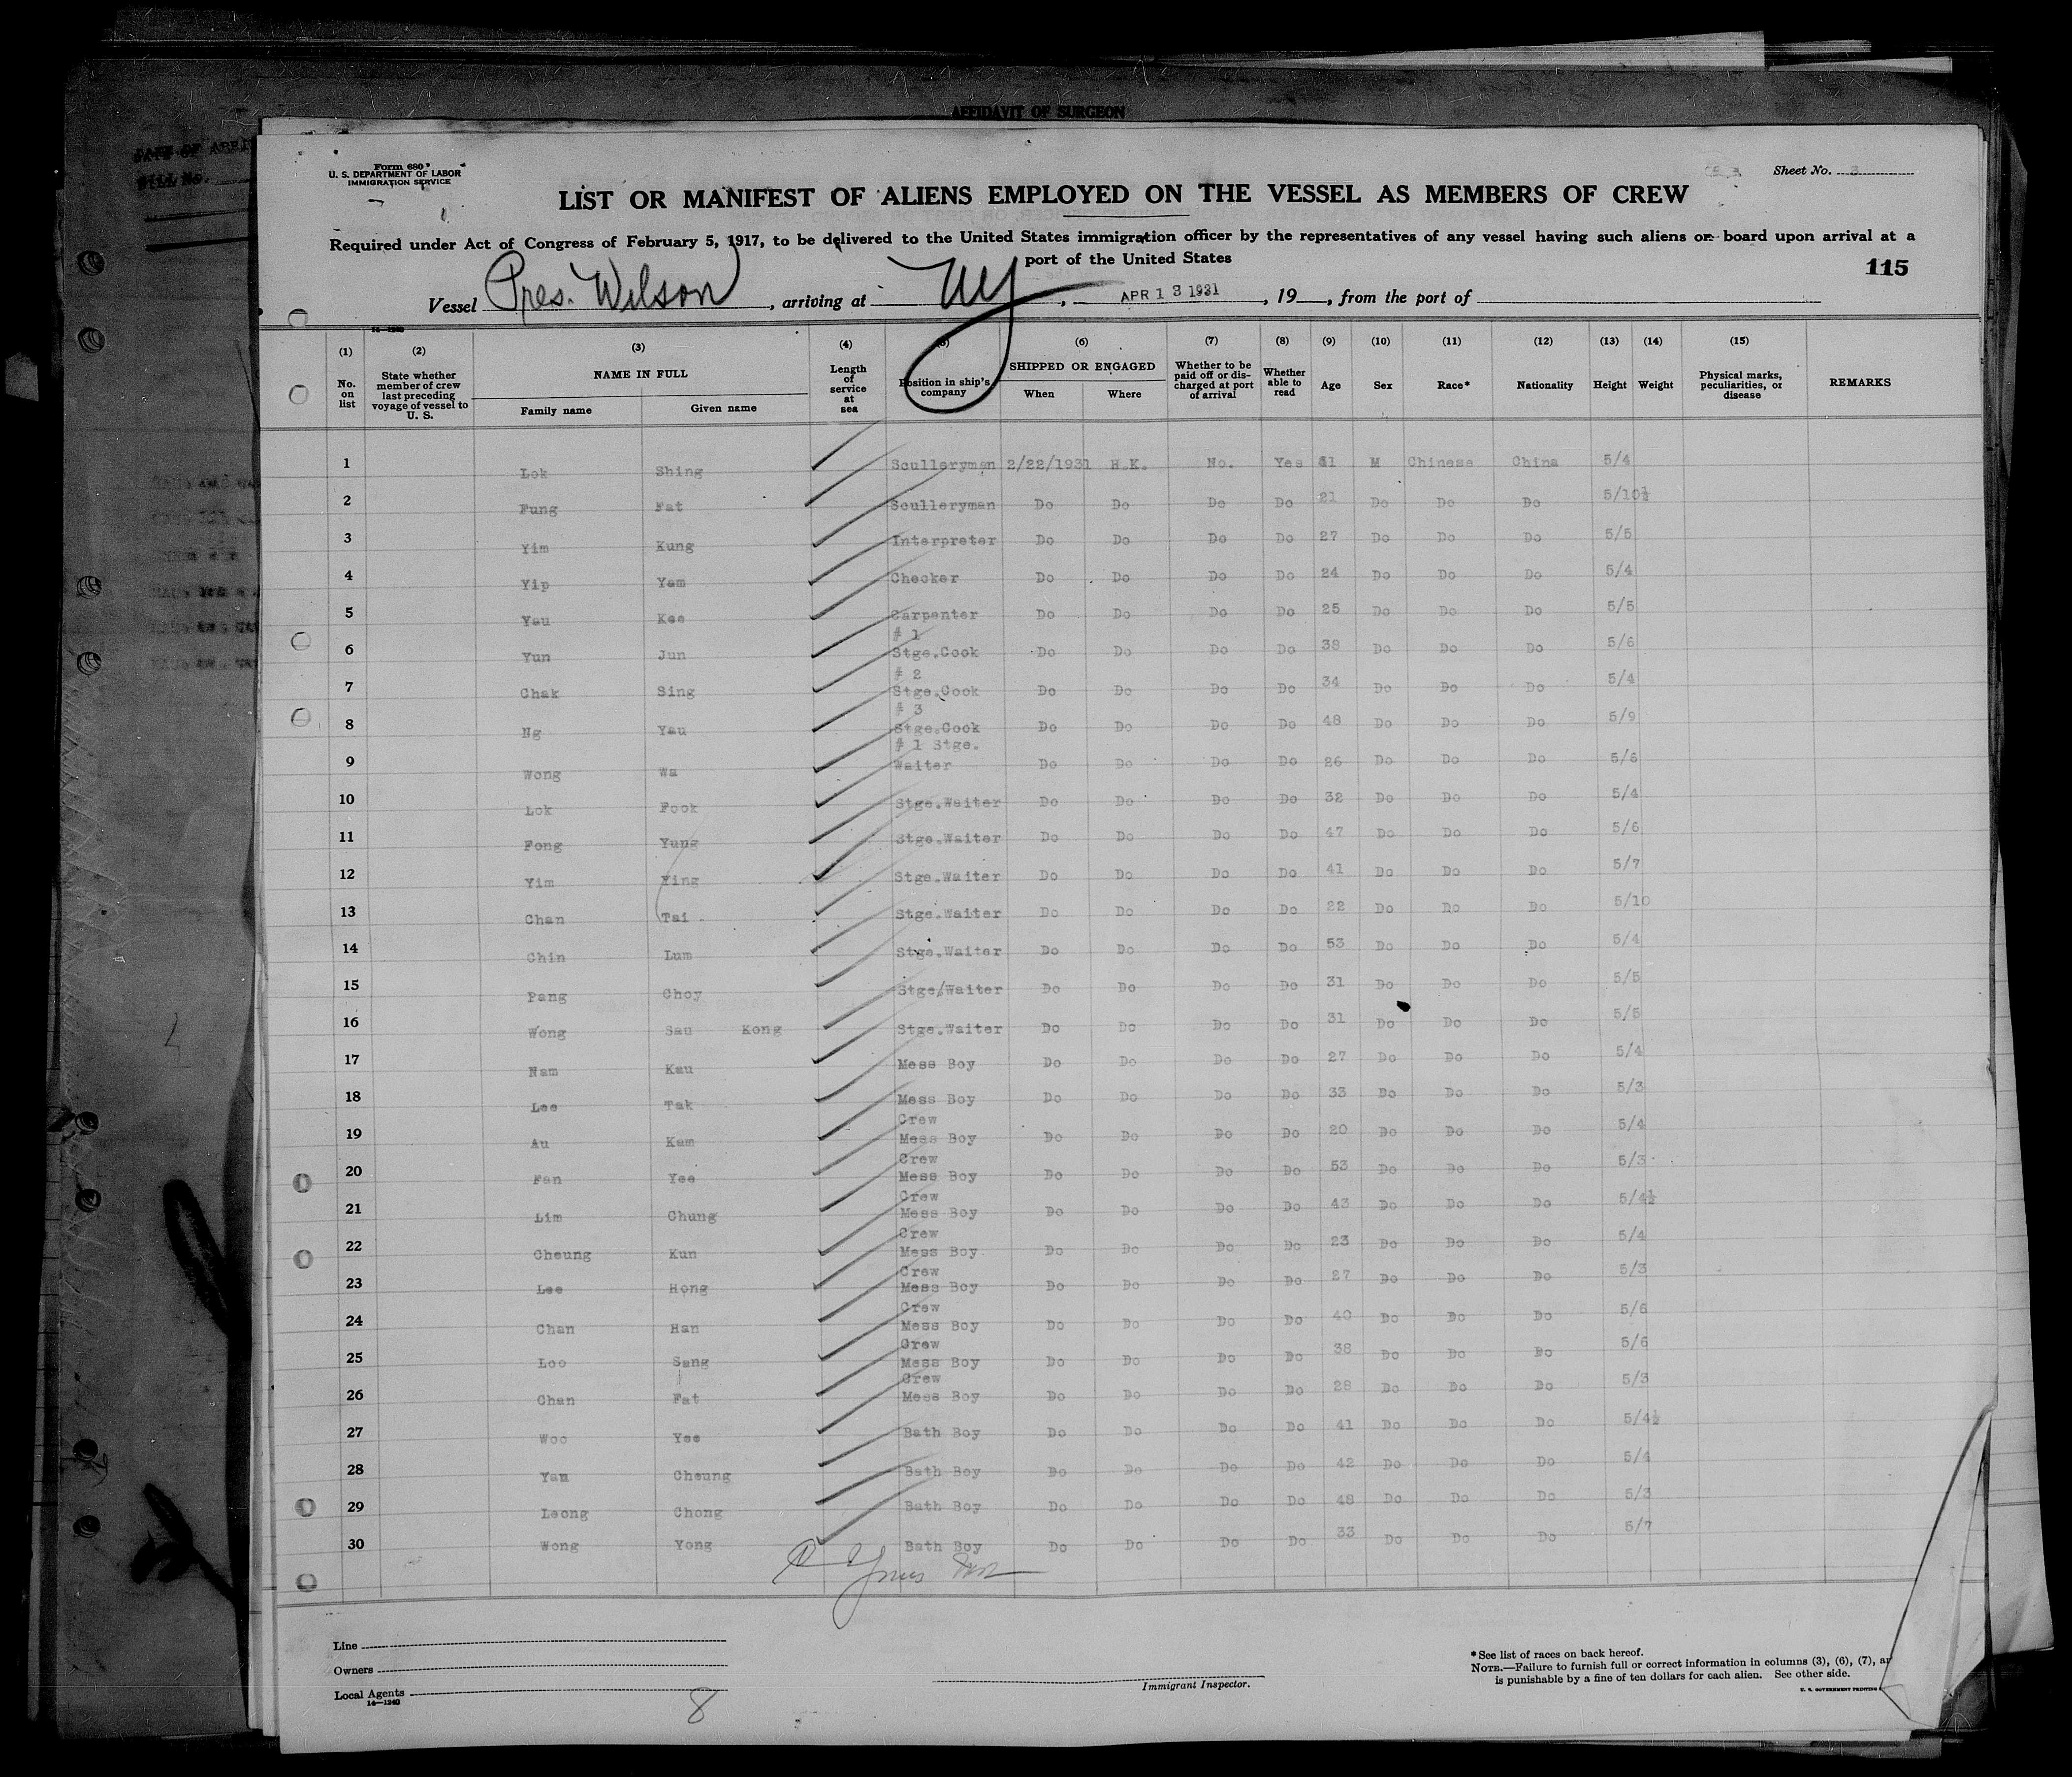 AFFIDAVIT OF SURGEON
Form 680
U. S. DEPARTMENT OF LABOR
IMMIGRATION SERVICE
Sheet No. 3
LIST OR MANIFEST OF ALIENS EMPLOYED ON THE VESSEL AS MEMBERS OF CREW
Required under Act of Congress of February 5, 1917, to be delivered to the United States immigration officer by the representatives of any vessel having such aliens on board upon arrival at a
port of the United States
115
Vessel Pres. Wilson, arriving at NY, APR 13 1931, 19, from the port of
14-1240
(1) No. on list (2) State whether member of crew last preceding voyage of vessel to U. S. (3) NAME IN FULL Family name Given name (4) Length of service at sea (5) Position in ship's company (6) SHIPPED OR ENGAGED When Where (7) Whether to be paid off or discharged at port of arrival (8) Whether able to read (9) Age (10) Sex (11) Race* (12) Nationality (13) Height (14) Weight (15) Physical marks, peculiarities, or disease REMARKS
1 Lok Shing Sculleryman 2/22/1931 H.K. No. Yes 41 M Chinese China 5/4
2 Fung Fat Sculleryman Do Do Do Do 21 Do Do Do 5/10½
3 Yim Kung Interpreter Do Do Do Do 27 Do Do Do 5/5
4 Yip Yam Checker Do Do Do Do 24 Do Do Do 5/4
5 Yau Kee Carpenter Do Do Do Do 25 Do Do Do 5/5
6 Yun Jun # 1 Stge.Cook Do Do Do Do 38 Do Do Do 5/6
7 Chak Sing # 2 Stge.Cook Do Do Do Do 34 Do Do Do 5/4
8 Ng Yau # 3 Stge.Cook Do Do Do Do 48 Do Do Do 5/9
9 Wong Wa # 1 Stge. Waiter Do Do Do Do 26 Do Do Do 5/6
10 Lok Fook Stge.Waiter Do Do Do Do 32 Do Do Do 5/4
11 Fong Yung Stge.Waiter Do Do Do Do 47 Do Do Do 5/6
12 Yim Xing Stge.Waiter Do Do Do Do 41 Do Do Do 5/7
13 Chan Tai Stge.Waiter Do Do Do Do 22 Do Do Do 5/10
14 Chin Lum Stge.Waiter Do Do Do Do 53 Do Do Do 5/4
15 Pang Choy Stge/Waiter Do Do Do Do 31 Do Do Do 5/5
16 Wong Sau Kong Stge.Waiter Do Do Do Do 31 Do Do Do 5/5
17 Nam Kau Mess Boy Do Do Do Do 27 Do Do Do 5/4
18 Lee Tak Mess Boy Do Do Do Do 33 Do Do Do 5/3
19 Au Kam Crew Mess Boy Do Do Do Do 20 Do Do Do 5/4
20 Fan Yee Crew Mess Boy Do Do Do Do 53 Do Do Do 5/3
21 Lim Chung Crew Mess Boy Do Do Do Do 43 Do Do Do 5/4½
22 Cheung Kun Crew Mess Boy Do Do Do Do 23 Do Do Do 5/4
23 Lee Hong Crew Mess Boy Do Do Do Do 27 Do Do Do 5/3
24 Chan Han Crew Mess Boy Do Do Do Do 40 Do Do Do 5/6
25 Loo Sang Crew Mess Boy Do Do Do Do 38 Do Do Do 5/6
26 Chan Fat Crew Mess Boy Do Do Do Do 28 Do Do Do 5/3
27 Woo Yee Bath Boy Do Do Do Do 41 Do Do Do 5/4½
28 Yau Cheung Bath Boy Do Do Do Do 42 Do Do Do 5/4
29 Leong Chong Bath Boy Do Do Do Do 48 Do Do Do 5/3
30 Wong Yong Bath Boy Do Do Do Do 33 Do Do Do 5/7
Line
Owners
Local Agents
14-1240
8
Immigrant Inspector.
*See list of races on back hereof.
NOTE.—Failure to furnish full or correct information in columns (3), (6), (7),
is punishable by a fine of ten dollars for each alien. See other side.
U. S. GOVERNMENT PRINTING